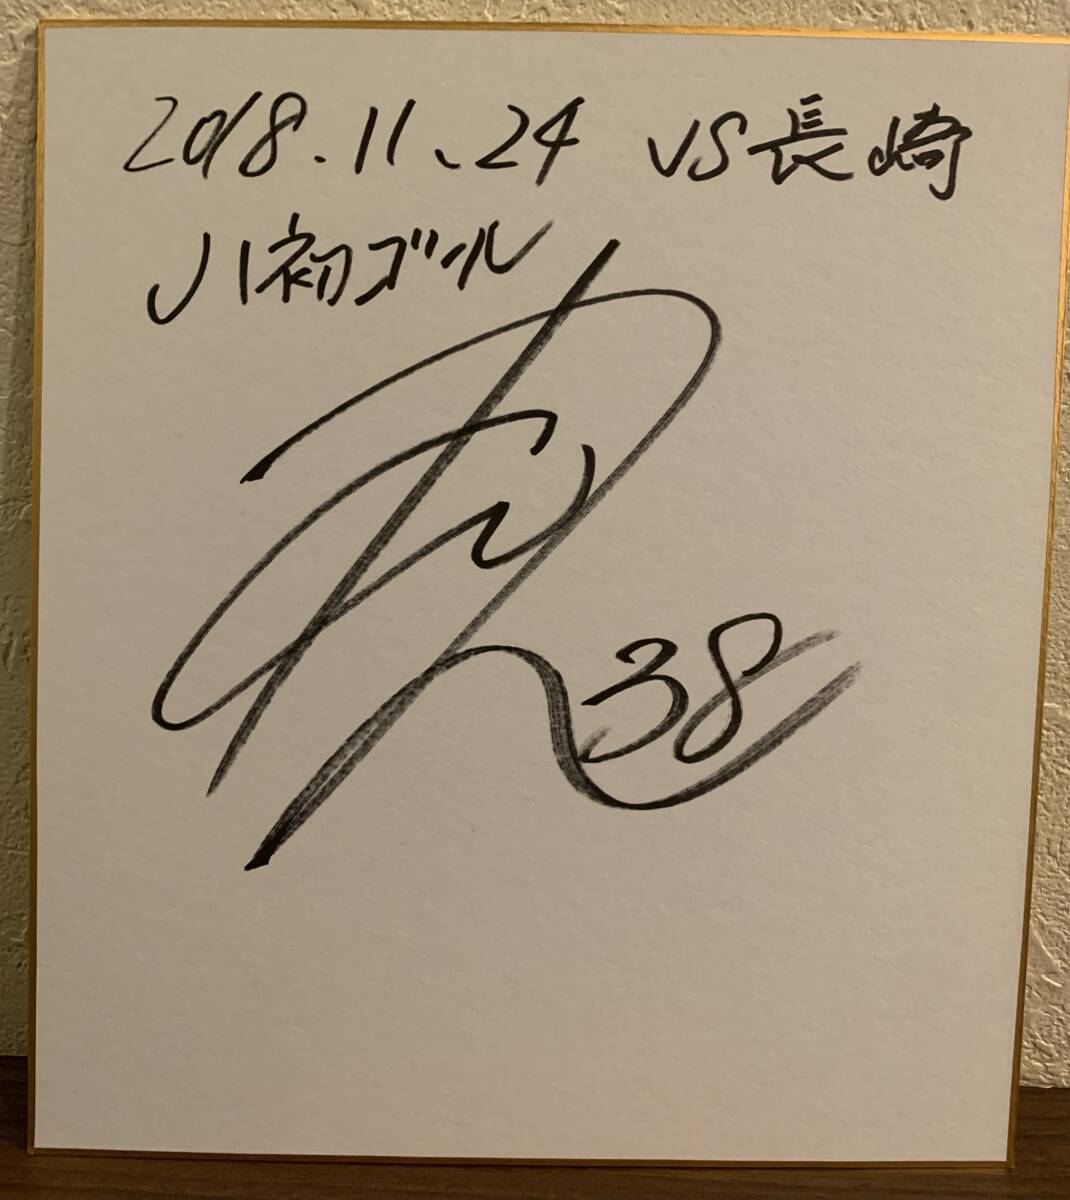 2018.11.24 VS長崎
J1初ゴール
38